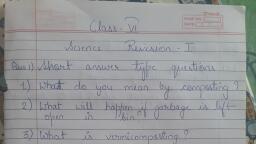 Class - VI
Science Revision - I
Ques 1) Short answer type questions
1) What do you mean by composting?
2) What will happen if garbage is left
open in bin?
3) What is vermicomposting?